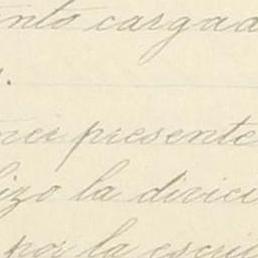 nto cargaa
nei presente
izo la dirici
por la escri